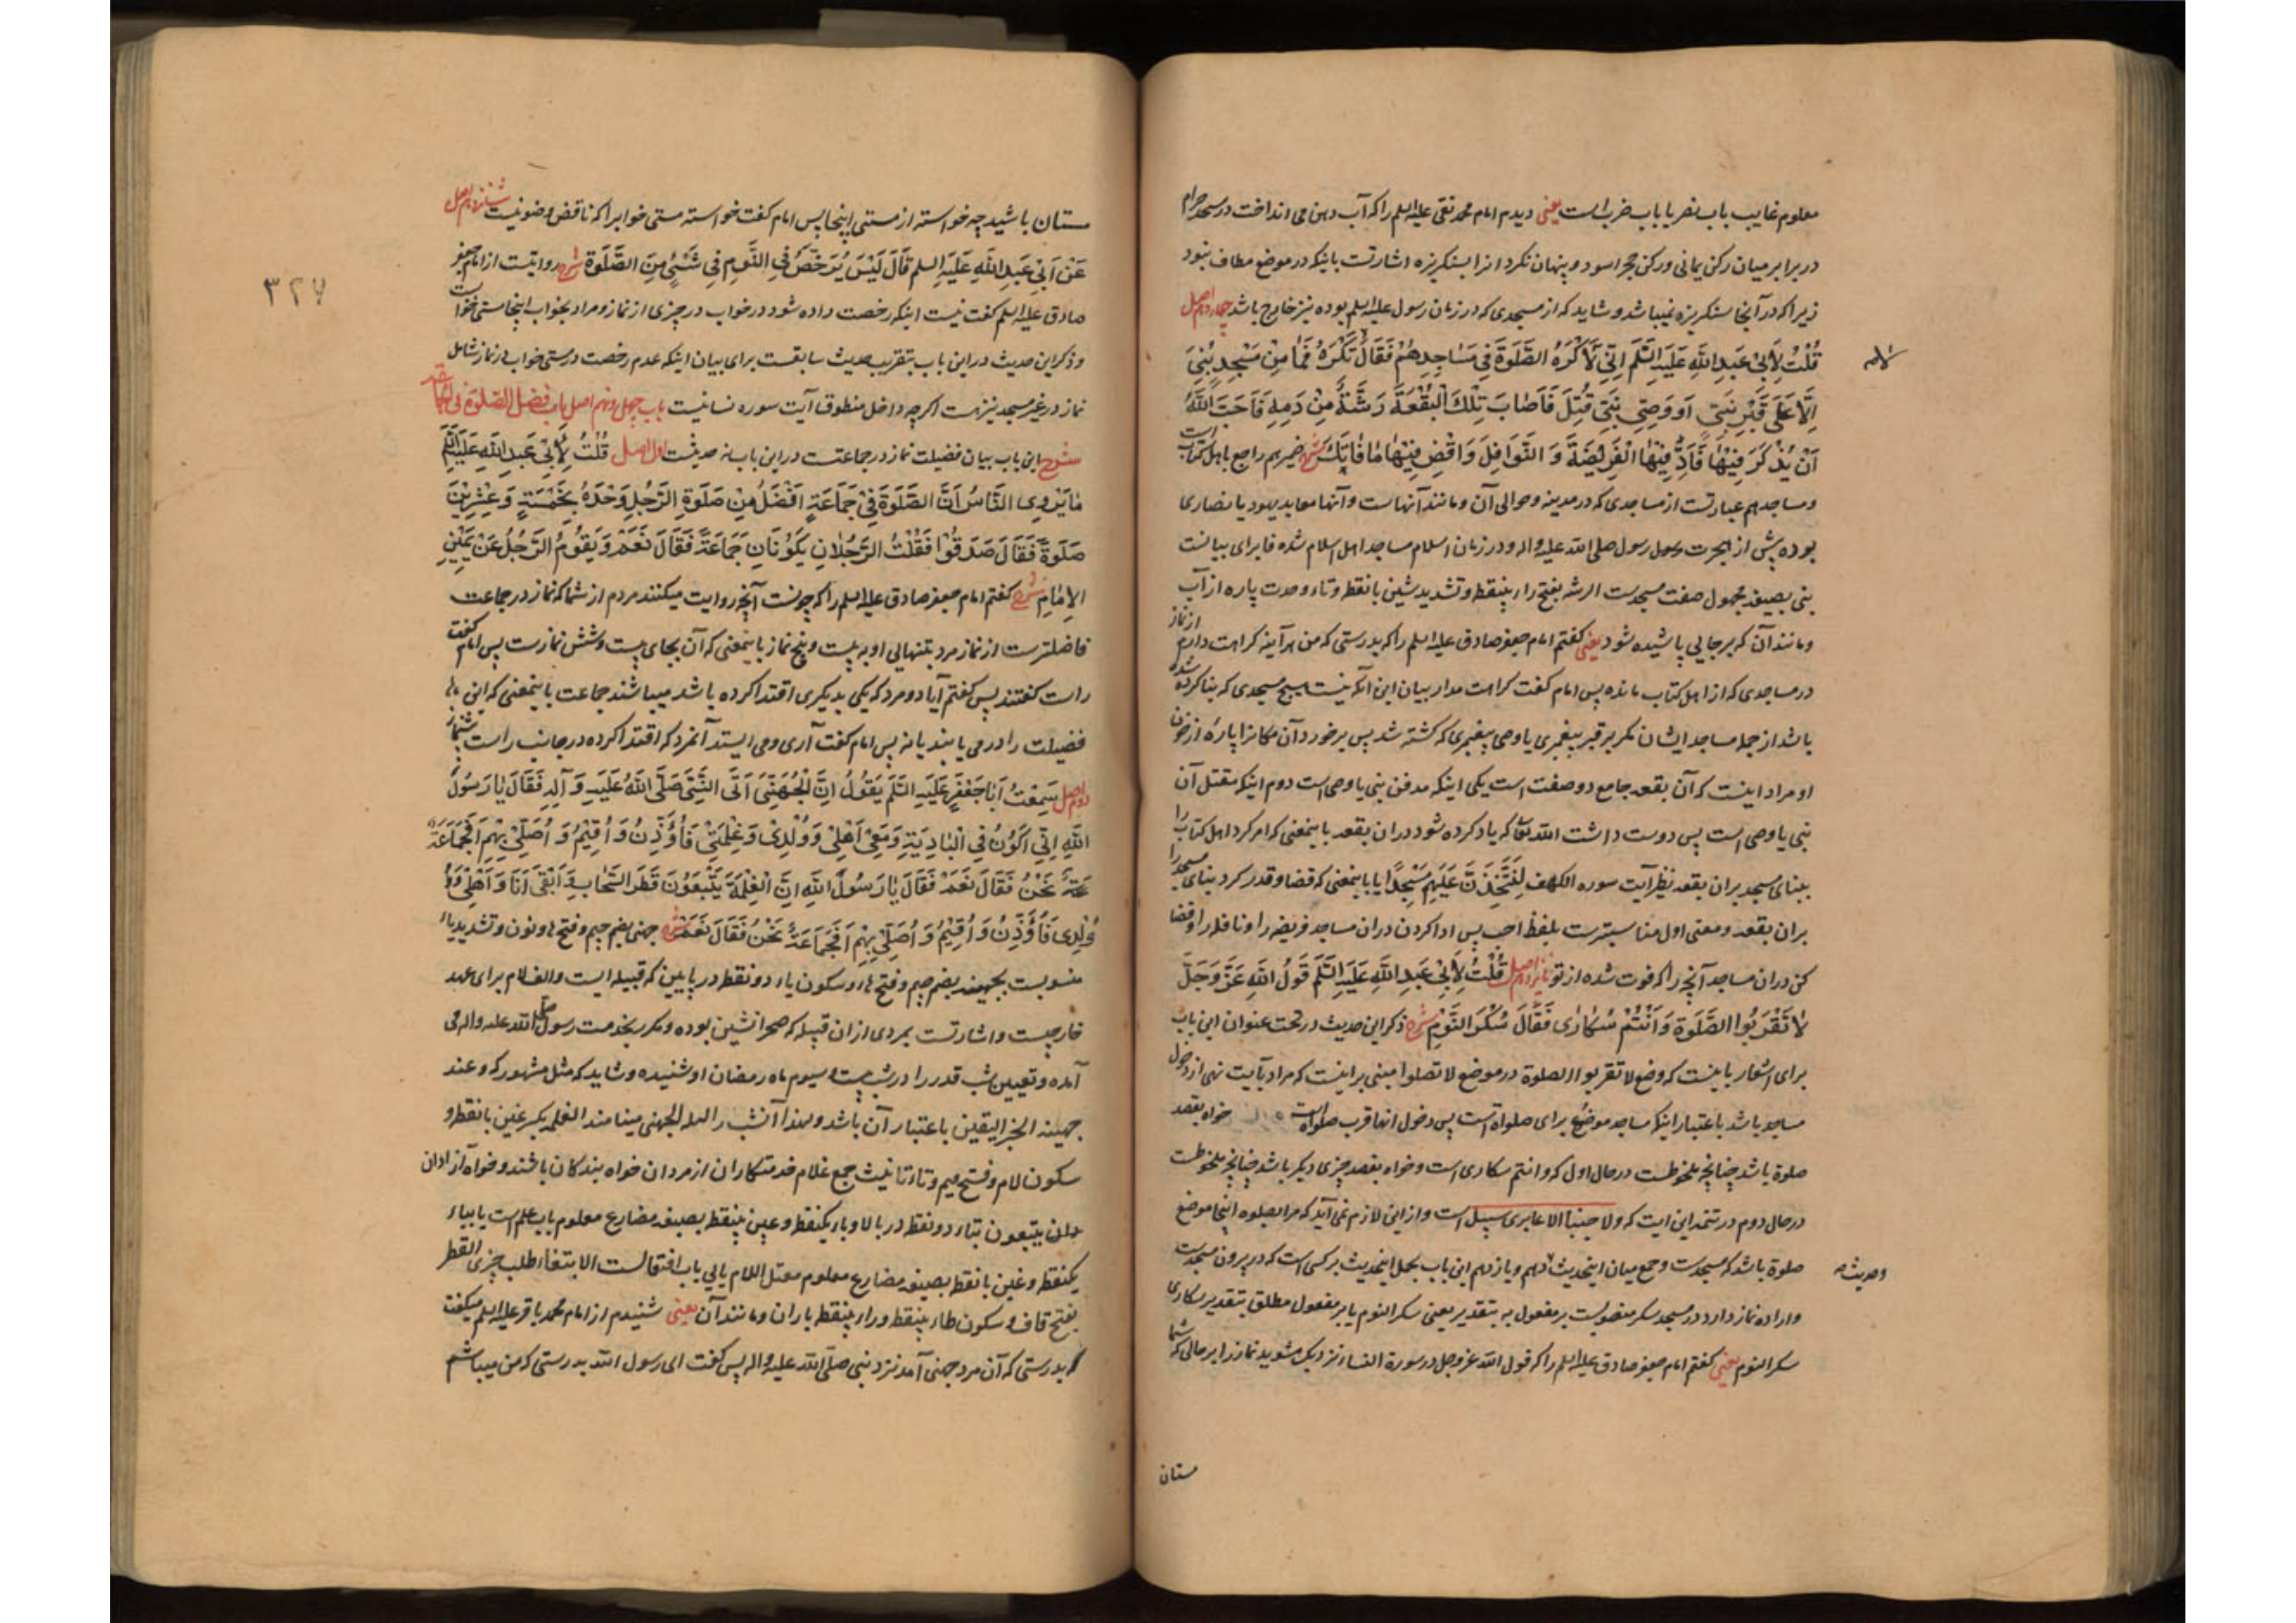 معلوم غایب باب نصر یا باب ضرب است یعنی دیدم امام محمد تقی علیه السلم را که آب دهن می انداخت در مسجد حرام
در برابر میان رکن یمانی و رکن حجر اسود و پنهان نکرد انرا بسنکریزه اشارتست باینکه در موضع مطاف نبود
زیرا که در آنجا سنکریزه نمیباشد و شاید که از مسجدی که در زمان رسول علیه السلم بوده نیز خارج باشد چهاردهم اصل
قُلْتُ لِأَبِی عَبدِ اللهِ عَلَیهِ السَّلَم اِنِّی لَأَکْرَهُ الصَّلَوةَ فِی مَسَاجِدِهِمْ فَقَالَ لَا تَکْرَهْ فَمَا مِنْ مَسْجِدٍ بُنِیَ
اِلَّا عَلَی قَبْرِ نَبِیٍّ اَو وَصِیِ نَبِیٍّ قُتِلَ فَاَصَابَ تِلْكَ الْبُقْعَةَ رَشَّةٌ مِنْ دَمِهِ فَاَحَبَّ اللهُ
اَنْ یُذْکَرَ فِیْهَا فَاَدِّ فِیْهَا الْفَرِیْضَةَ وَ النَّوَافِلَ وَ اقْضِ فِیْهَا مَا فَاتَكَ شرح ضمیر هم راجع باهل کتاب است
و مساجد هم عبارتست از مساجدی که در مدینه و حوالی آن و مانند آنهاست و آنها معابد یهود یا نصاری
بوده پیش از هجرت رسول صلی الله علیه واله و در زمان اسلام مساجد اهل اسلام شده فا برای بیانست
بنی بصیغه مجهول صفت مسجدست الرشه بفتح راء بینقطه و تشدید شین با نقطه و تاء وحدت پاره از آب
و مانند آن که بر جایی پاشیده شود یعنی کفتم امام جعفر صادق علیه السلم را که بدرستی که من هر آینه کراهت دارم از نماز
در مساجدی که از اهل کتاب مانده پس امام کفت کراهت مدار بیان این آنکه نیست هیچ مسجدی که بنا کرده شده
باشد از جمله مساجد ایشان مکر بر قبر پیغمبری یا وصی پیغمبری که کشته شد پس برخورد آن مکانرا پارهٔ از خون
او مراد اینست که آن بقعه جامع دو صفت است یکی اینکه مدفن نبی یا وصی است دوم اینکه مقتل آن
نبی یا وصی است پس دوست داشت الله تعالی که یاد کرده شود دران بقعه باینمعنی که امر کرد اهل کتاب را
ببنای مسجد بران بقعه نظیر آیت سوره الکهف لَنَتَّخِذَنَّ عَلَیْهِمْ مَسْجِدًا یا باینمعنی که قضا و قدر کرد بنای مسجد را
بران بقعه و معنی اول مناسبترست بلفظ احب پس ادا کردن دران مساجد فریضه را و نافله را و قضا
کن دران مساجد آنچه را که فوت شده از تو پانزدهم اصل قُلْتُ لِأَبِی عَبدِ اللهِ عَلَیهِ السَّلَم قَولُ اللهِ عَزَّ وَجَلَّ
لَا تَقْرَبُوا الصَّلَوةَ وَ اَنْتُمْ سُکَارَی فَقَالَ سُکْرُ النَّوْمِ شرح ذکر این حدیث در تحت عنوان این باب
برای اشعار باینست که وضع لا تقربوا الصلوة در موضع لا تصلوا مبنی بر اینست که مراد بآیت نهی از دخول
مساجد باشد باعتبار اینکه مساجد موضوع برای صلواة است پس دخول انها قرب صلواة است خواه بقصد
صلوة باشد چنانچه ملحوظست در حال اول که و انتم سکاری است و خواه بقصد چیزی دیکر باشد چنانچه ملحوظست
در حال دوم در تتمه این ایت که ولا جنبا الا عابری سبیل است و از این لازم نمی آید که مراد بصلوه اینجا موضع
صلوة باشد که مسجدست و جمع میان اینحدیث و حدیث دهم و یازدهم این باب بحمل اینحدیث بر کسی است که در بیرون مسجدست
و اراده نماز دارد در مسجد سکر منصوبست بر مفعول به بتقدیر یعنی سکر النوم یا بر مفعول مطلق بتقدیر سکاری
سکر النوم یعنی کفتم امام جعفر صادق علیه السلم را که قول الله عز وجل در سورة النساء نزدیک مشوید نماز را بر حالی که شما
مستان
۳۲۷
مستان باشید چه خواسته از مستی اینجا پس امام کفت خواسته مستی خوابرا که ناقض وضو نیست شانزدهم اصل
عَنْ اَبِی عَبدِ اللهِ عَلَیهِ السلم قَالَ لَیْسَ یُرَخَّصُ فِی النَّومِ فِی شَیْءٍ مِنَ الصَّلَوةِ شرح روایتست از امام جعفر
صادق علیه السلم کفت نیست اینکه رخصت داده شود در خواب در چیزی از نماز و مراد بخواب اینجا مستی خوابست
و ذکر این حدیث در این باب بتقریب حدیث سابقست برای بیان اینکه عدم رخصت در مستی خواب در نماز شامل
نماز در غیر مسجد نیز هست اکرچه داخل منطوق آیت سوره نسا نیست باب چهل و نهم اصل باب فضل الصلوة فی الجماعة
شرح این باب بیان فضیلت نماز در جماعتست در این باب نه حدیثست اول اصل قُلْتُ لِأَبِی عَبدِ اللهِ عَلَیهِ السَّلَم
مَا یَرْوِی النَّاسُ اَنَّ الصَّلَوةَ فِی جَمَاعَةٍ اَفْضَلُ مِنْ صَلَوةِ الرَّجُلِ وَحْدَهُ بِخَمْسَةٍ وَ عِشْرِیْنَ
صَلَوةً فَقَالَ صَدَقُوا فَقُلْتُ الرَّجُلَانِ یَکُوْنَانِ جَمَاعَةً فَقَالَ نَعَمْ وَ یَقُوْمُ الرَّجُلُ عَنْ یَمِیْنِ
الْاِمَامِ شرح کفتم امام جعفر صادق علیه السلم را که چونست آنچه روایت میکنند مردم از شما که نماز در جماعت
فاضلترست از نماز مرد بتنهایی او به بیست و پنج نماز باینمعنی که آن بجای بیست و شش نمازست پس امام کفت
راست کفتند پس کفتم آیا دو مرد که یکی بدیکری اقتدا کرده باشد میباشند جماعت باینمعنی که این
فضیلت را در می یابند یا نه پس امام کفت آری و می ایستد آنمرد که اقتدا کرده در جانب راست
دوم اصل سَمِعْتُ اَبَا جَعْفَرٍ عَلَیهِ السَّلَم یَقُوْلُ اِنَّ الْجُهَنِیَّ اَتَی النَّبِیَّ صَلَّی اللهُ عَلَیهِ وَ آلِهِ فَقَالَ یَا رَسُوْلَ
اللهِ اِنِّی اَکُوْنُ فِی الْبَادِیَةِ وَ مَعِیَ اَهْلِی وَ وُلْدِی وَ غِلْمَتِی فَاُؤَذِّنُ وَ اُقِیْمُ وَ اُصَلِّی بِهِمْ اَفَجَمَاعَةٌ
نَحْنُ فَقَالَ نَعَمْ فَقَالَ یَا رَسُولَ اللهِ اِنَّ الْغِلْمَةَ یَتَّبِعُوْنَ قَطْرَ السَّحَابِ وَ اَبْقَی اَنَا وَ اَهْلِی وَ
وُلْدِی فَاُؤَذِّنُ وَ اُقِیْمُ وَ اُصَلِّی بِهِمْ اَفَجَمَاعَةٌ نَحْنُ فَقَالَ نَعَمْ شرح جهنی بضم جیم و فتح ها و نون و تشدید یاء
منسوبست بجهینه بضم جیم و فتح هاء و سکون یاء دو نقطه در پایین که قبیله ایست و الف لام برای عهد
خارجیست و اشارتست بمردی از ان قبیله که صحرا نشین بوده و مکرر بخدمت رسول صلی الله علیه واله می
آمده و تعیین شب قدر را در شب بیست و سیوم ماه رمضان او شنیده و شاید که مثل مشهور که و عند
جهینه الخبر الیقین باعتبار آن باشد و لهذا آنشب را لیلة الجهنی مینامند الغلمه بکسر غین با نقطه و
سکون لام و فتح میم و تاء تانیث جمع غلام خدمتکاران از مردان خواه بندکان باشند و خواه آزادان
یتبعون بتاء دو نقطه در بالا و باء یکنقطه و عین بینقطه بصیغه مضارع معلوم باب علم است یا بباء
یکنقطه و غین با نقطه بصیغه مضارع معلوم معتل اللام یایی باب افتعالست الابتغاء طلب چیزی القطر
بفتح قاف و سکون طاء بینقطه و راء بینقطه باران و مانند آن یعنی شنیدم از امام محمد باقر علیه السلم میکفت
که بدرستی که آن مرد جهنی آمد نزد نبی صلی الله علیه واله پس کفت ای رسول الله بدرستی که من میباشم